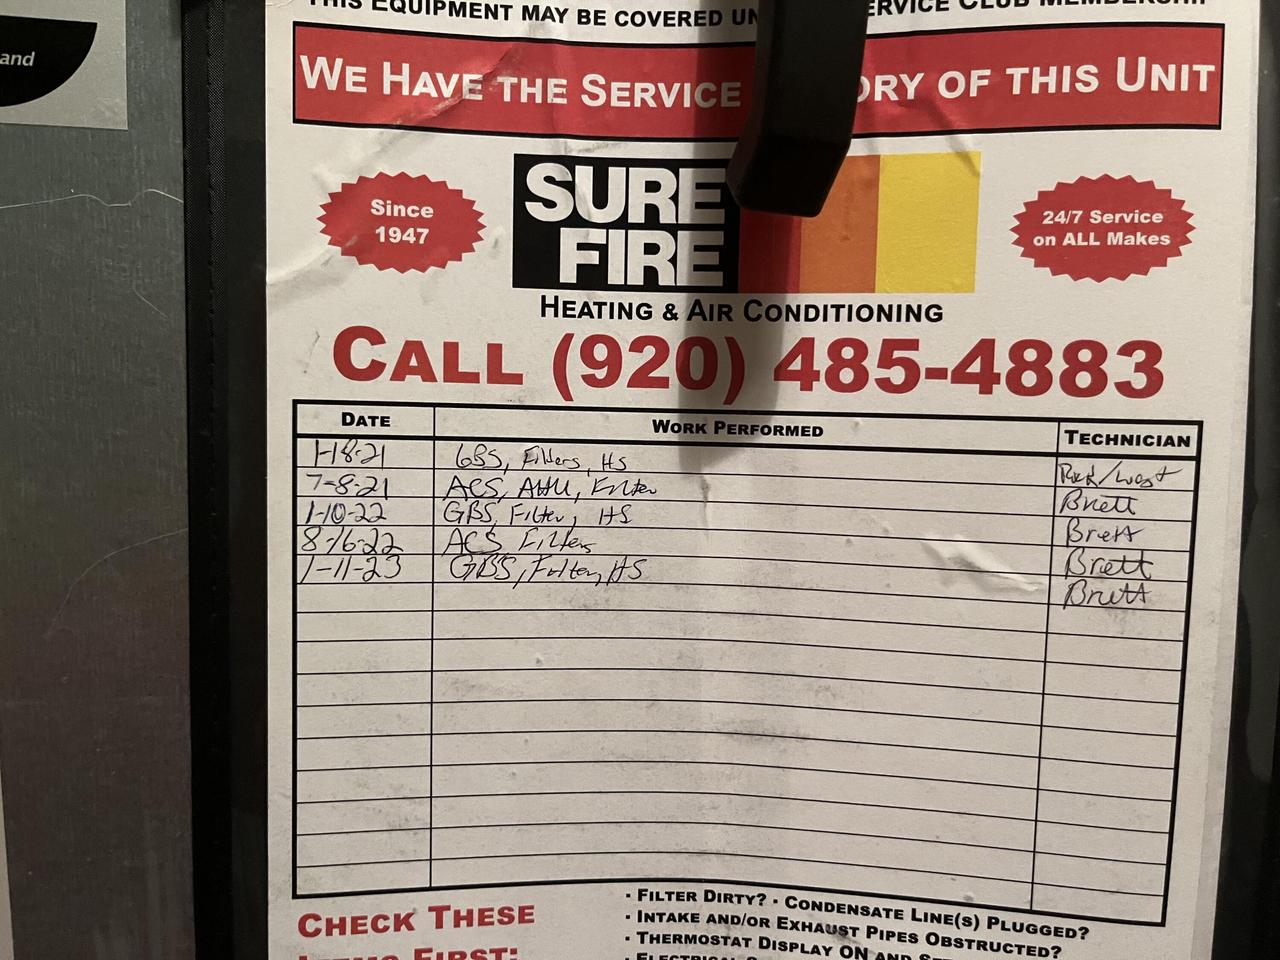 and
THIS EQUIPMENT MAY BE COVERED UN ERVICE CLUB MEMBERSHIP
WE HAVE THE SERVICE ORY OF THIS UNIT
Since
1947
SURE
FIRE
24/7 Service
on ALL Makes
HEATING & AIR CONDITIONING
CALL (920) 485-4883
DATE WORK PERFORMED TECHNICIAN
1-18-21 GBS, Filters, HS
7-8-21 ACS, AHU, Filter Brett
1-10-22 GBS, Filter, HS Brett
8-16-22 ACS, Filters Brett
1-11-23 GBS, Filter, HS Brett
CHECK THESE
ITEMS FIRST:
· FILTER DIRTY? · CONDENSATE LINE(S) PLUGGED?
· INTAKE AND/OR EXHAUST PIPES OBSTRUCTED?
· THERMOSTAT DISPLAY ON AND